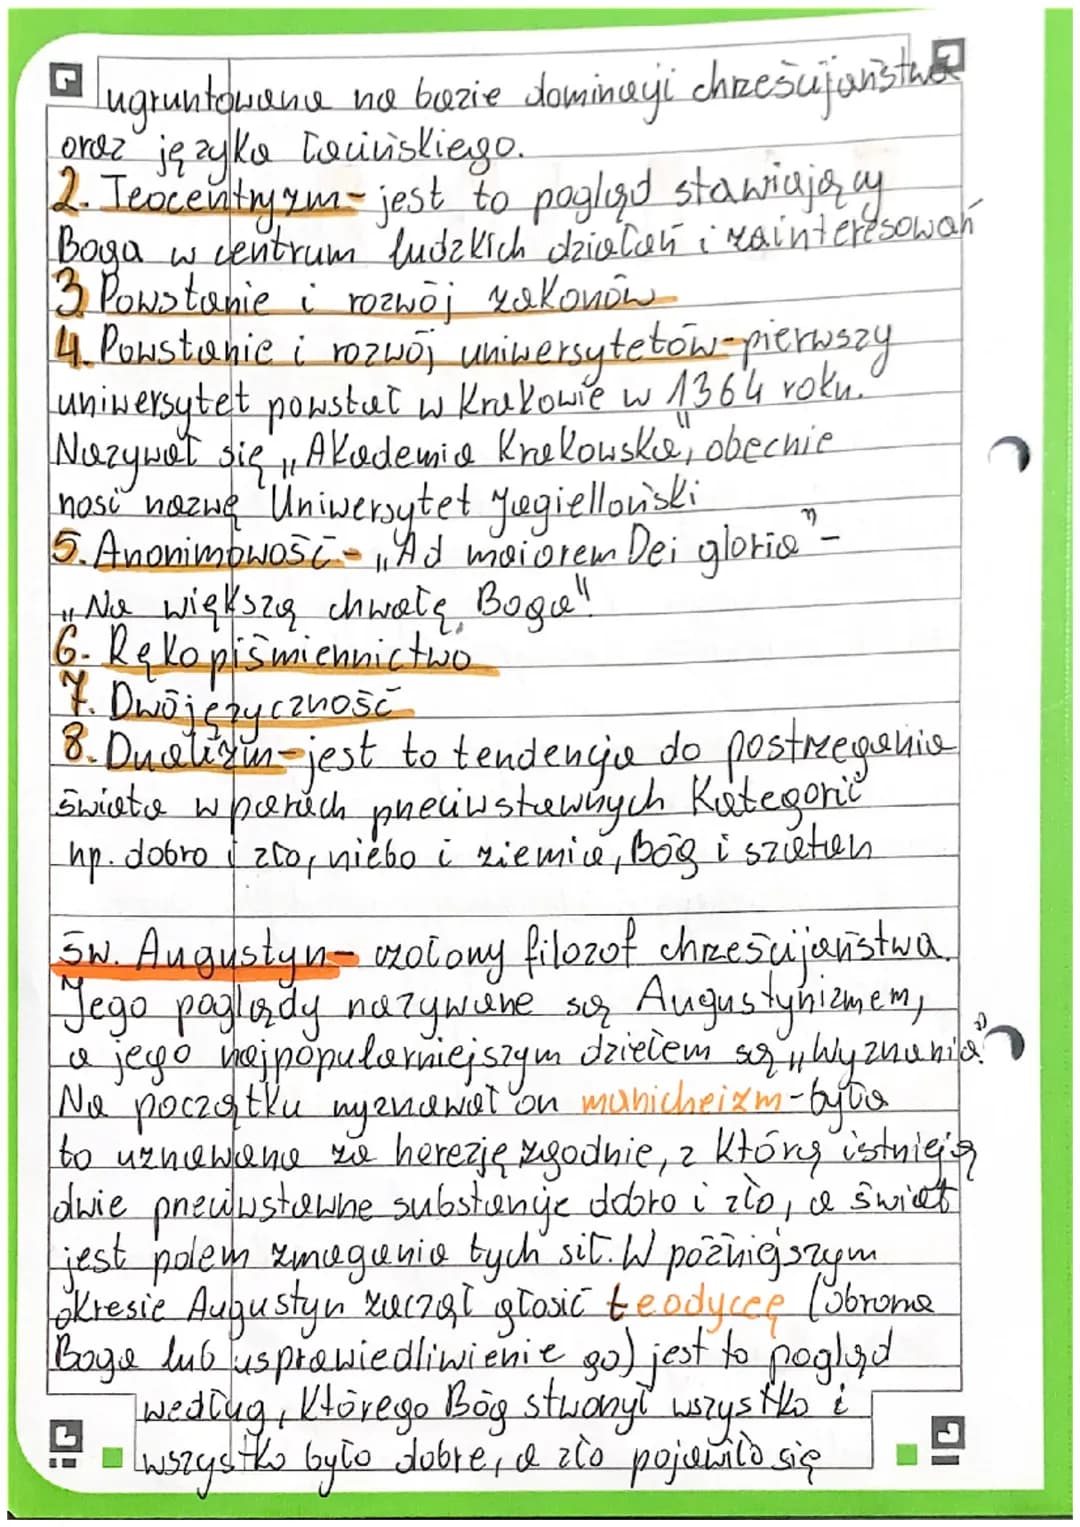 ugruntowana na bazie dominacji chrześcijaństwa
oraz języka łacińskiego.
2. Teocentryzm - jest to pogląd stawiający
Boga w centrum ludzkich działań i zainteresowań
3. Powstanie i rozwój zakonów
4. Powstanie i rozwój uniwersytetów - pierwszy
uniwersytet powstał w Krakowie w 1364 roku.
Nazywał się „Akademia Krakowska", obecnie
nosi nazwę Uniwersytet Jagielloński
5. Anonimowość - „Ad maiorem Dei gloria" -
„Na większą chwałę Boga"
6. Rękopiśmiennictwo
7. Dwójęzyczność
8. Dualizm - jest to tendencja do postrzegania
świata w parach przeciwstawnych kategorii
np. dobro i zło, niebo i ziemia, Bóg i szatan
św. Augustyn - czołowy filozof chrześcijaństwa.
Jego poglądy nazywane są Augustynizmem,
a jego najpopularniejszym dziełem są „Wyznania"
Na początku wyznawał on manicheizm - była
to uznawana za herezję zgodnie, z którą istnieją
dwie przeciwstawne substancje dobro i zło, a świat
jest polem zmagania tych sił. W późniejszym
okresie Augustyn zaczął głosić teodyceę (obrona
Boga lub usprawiedliwienie go) jest to pogląd
według, którego Bóg stworzył wszystko i
wszystko było dobre, a zło pojawiło się